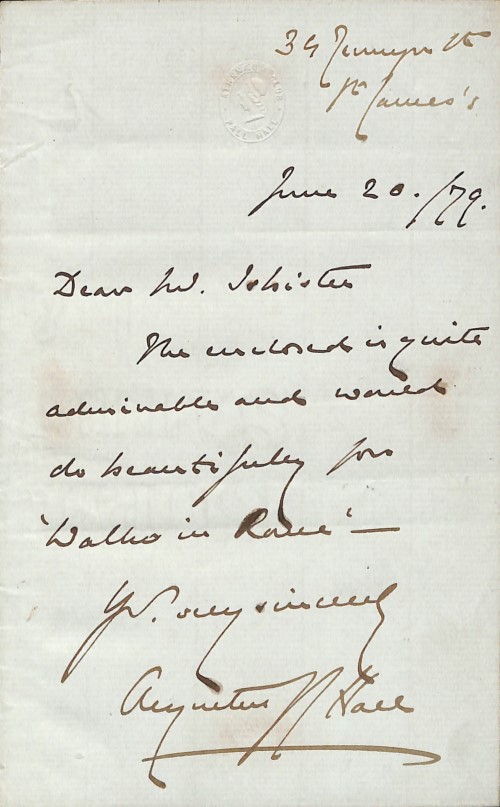 ATHENÆUM CLUB
PALL MALL
34 Jermyn St
St James's
June 20./79.
Dear Mr.
The enclosed is quite
admirable and would
do beautifully for
'Walks in Rome' —
Yrs. very sincerely
Augustus J C Hare